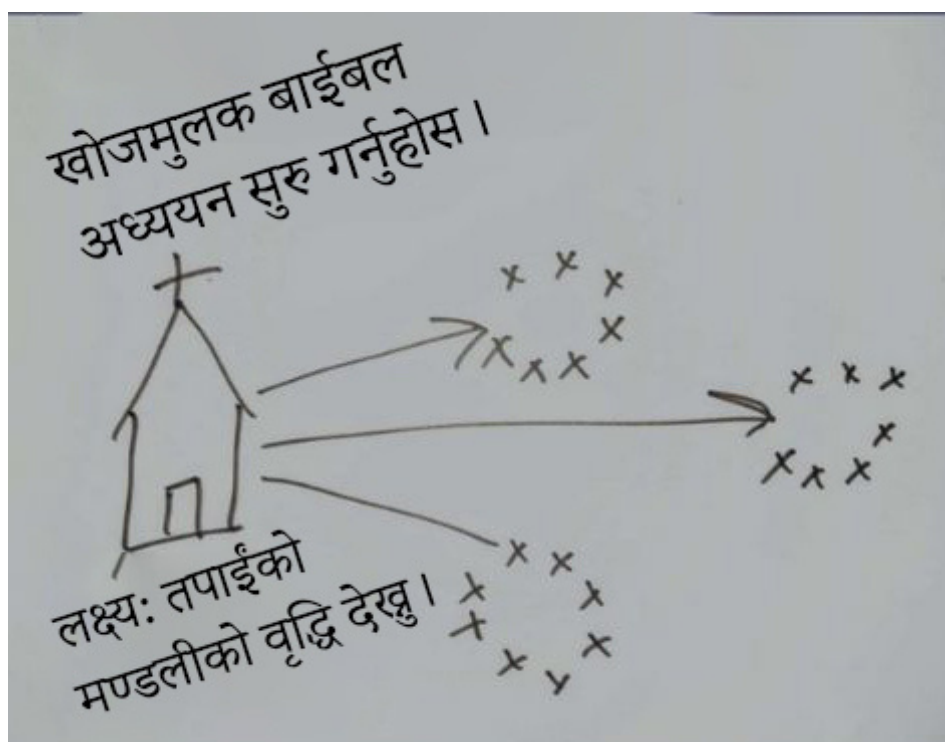 खोजमुलक बाईबल
अध्ययन सुरु गर्नुहोस ।
लक्ष्य: तपाईंको
मण्डलीको वृद्धि देख्नु ।